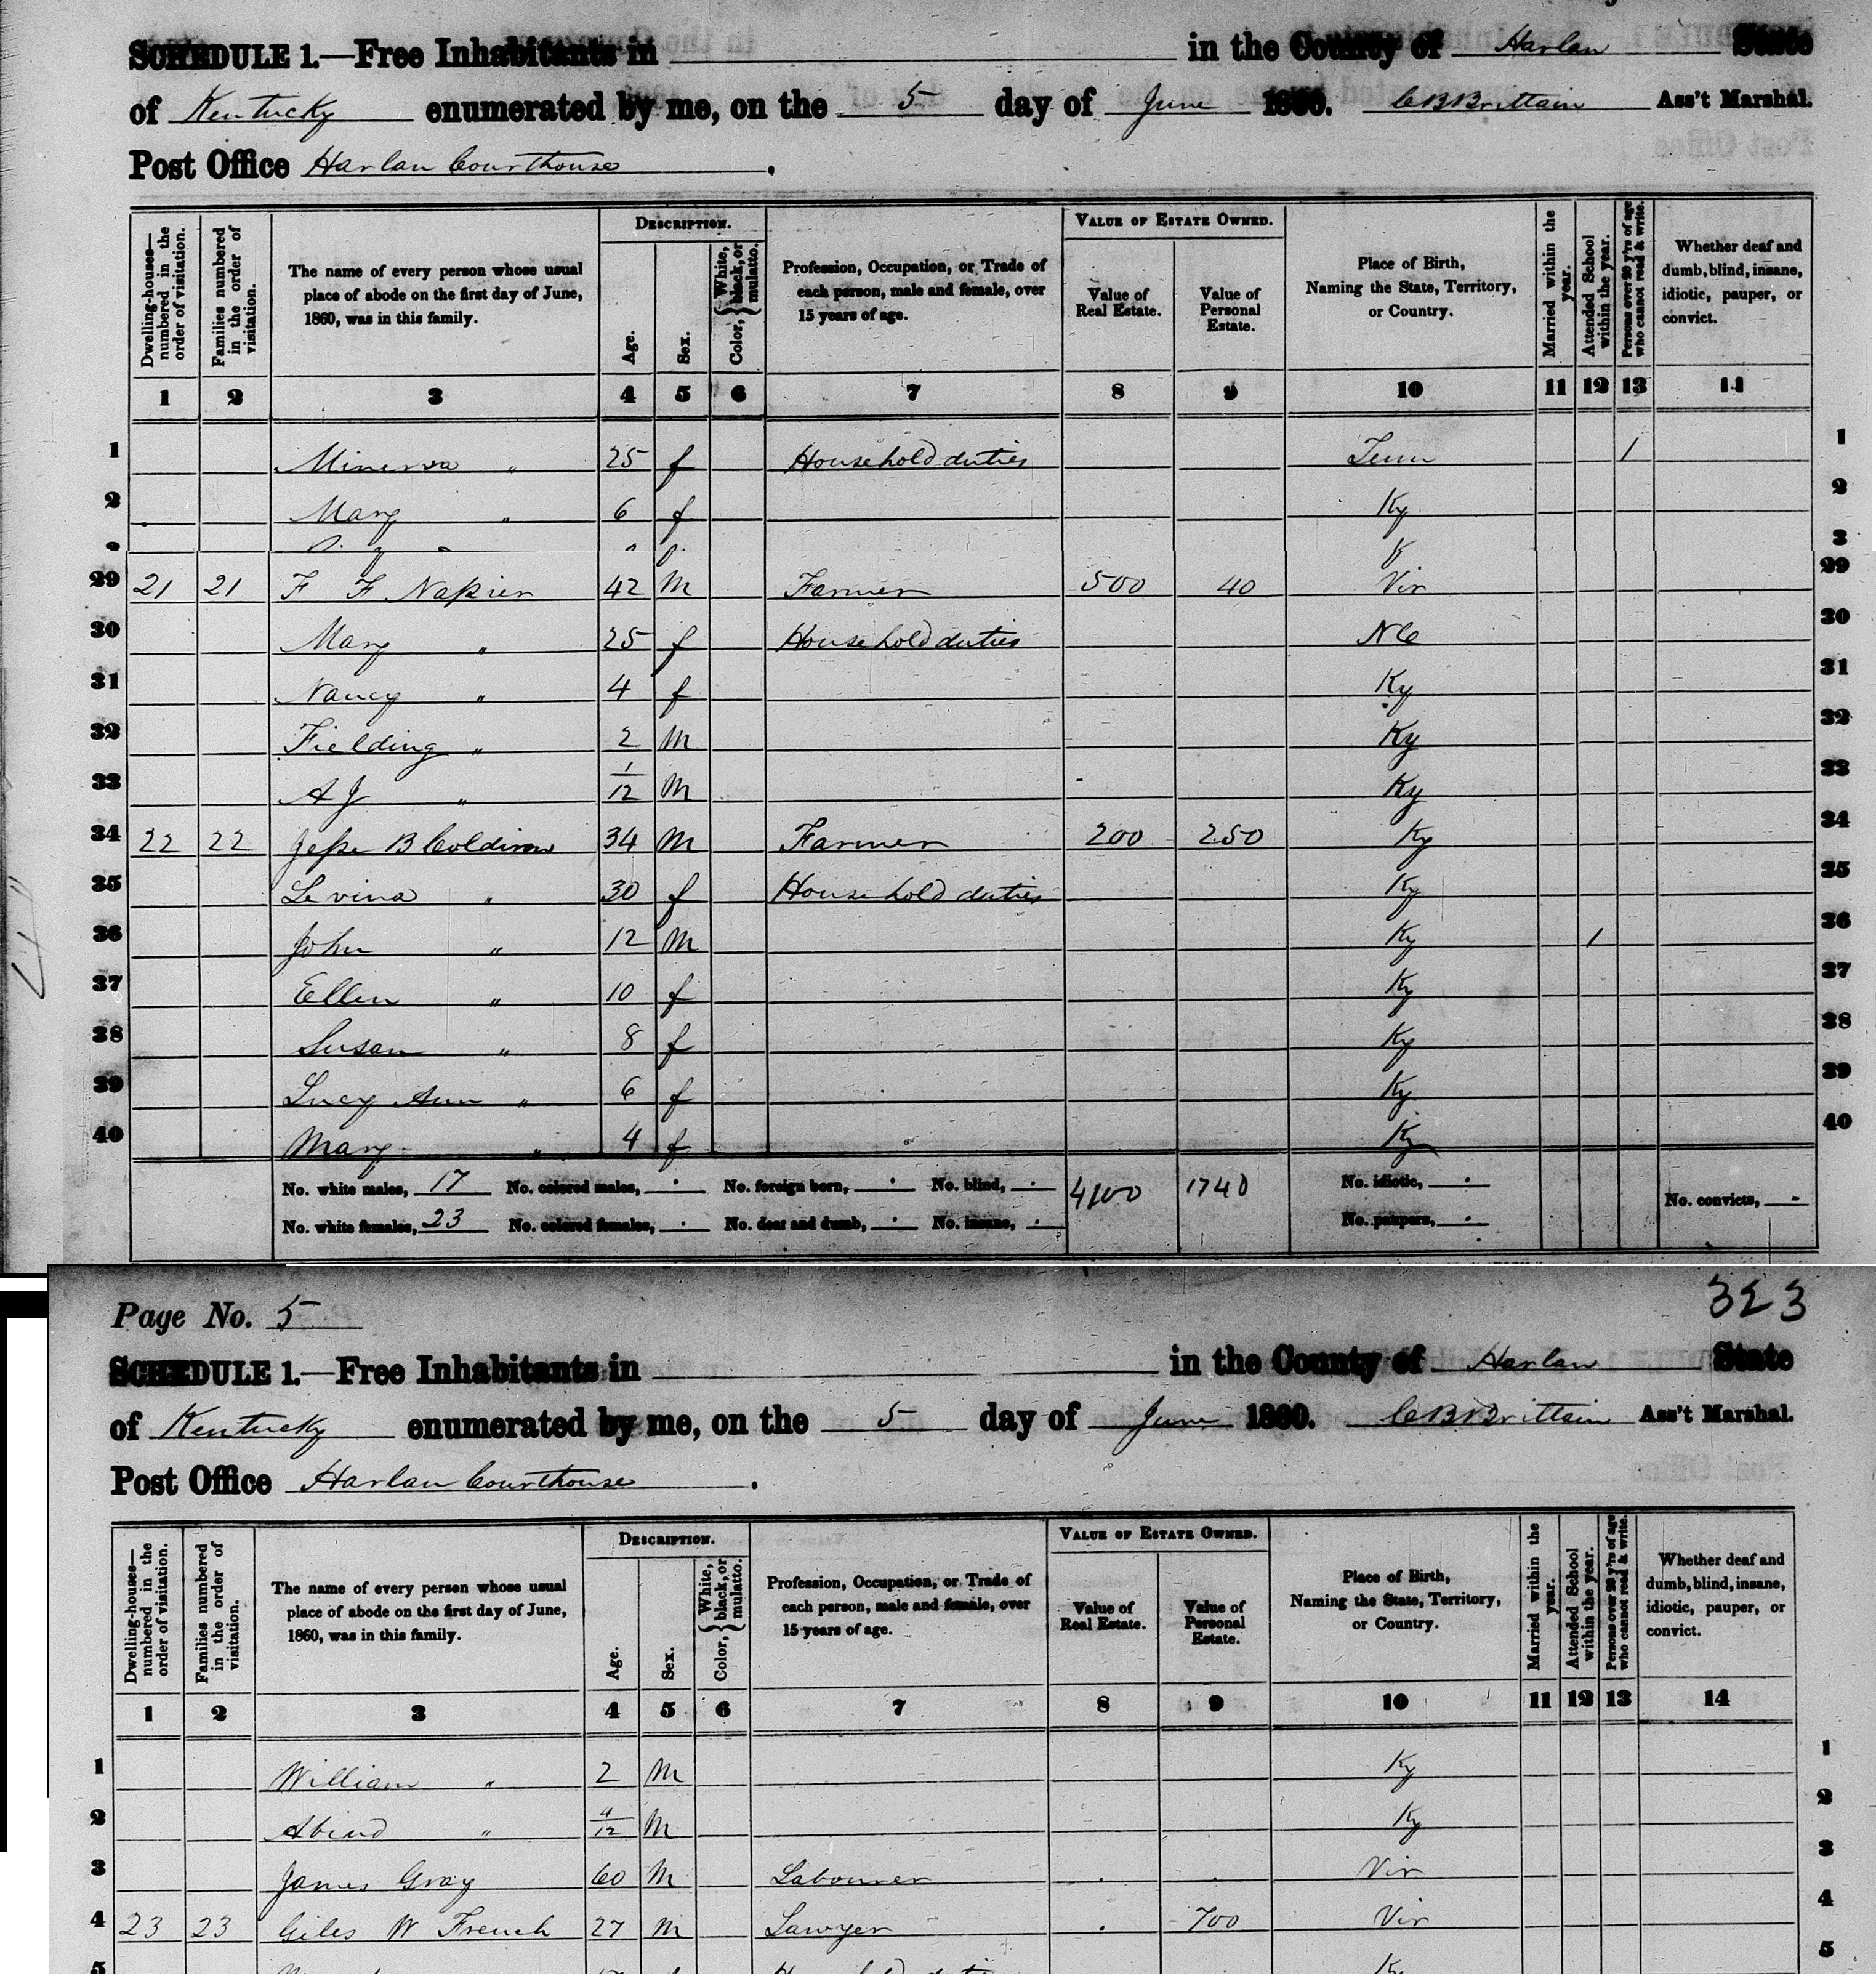 SCHEDULE 1.—Free Inhabitants in in the County of Harlan State
of Kentucky enumerated by me, on the 5 day of June 1860. C B Brittain Ass't Marshal.
Post Office Harlan Courthouse .
Dwelling-houses—numbered in the order of visitation.
Families numbered in the order of visitation.
The name of every person whose usual place of abode on the first day of June, 1860, was in this family.
DESCRIPTION.
Age.
Sex.
Color, White, black, or mulatto.
Profession, Occupation, or Trade of each person, male and female, over 15 years of age.
VALUE OF ESTATE OWNED.
Value of Real Estate.
Value of Personal Estate.
Place of Birth, Naming the State, Territory, or Country.
Married within the year.
Attended School within the year.
Persons over 20 y'rs of age who cannot read & write.
Whether deaf and dumb, blind, insane, idiotic, pauper, or convict.
1 2 3 4 5 6 7 8 9 10 11 12 13 14
1 Minerva " 25 f Household duties Tenn 1 1
2 Mary " 6 f Ky 2
3
29 21 21 F F Napier 42 M Farmer 500 40 Vir 29
30 Mary " 25 f Household duties NC 30
31 Nancy " 4 f Ky 31
32 Fielding " 2 M Ky 32
33 A J " 1/12 M Ky 33
34 22 22 Jesse B Coldiron 34 M Farmer 200 250 Ky 34
35 Levina " 30 f Household duties Ky 35
36 John " 12 M Ky 1 36
37 Ellen " 10 f Ky 37
38 Susan " 8 f Ky 38
39 Lucy Ann " 6 f Ky 39
40 Mary " 4 f Ky 40
No. white males, 17 No. colored males, No. foreign born, No. blind, 4100 1740 No. idiotic,
No. white females, 23 No. colored females, No. deaf and dumb, No. insane, No. paupers, No. convicts, -
Page No. 5 323
SCHEDULE 1.—Free Inhabitants in in the County of Harlan State
of Kentucky enumerated by me, on the 5 day of June 1860. C B Brittain Ass't Marshal.
Post Office Harlan Courthouse .
Dwelling-houses—numbered in the order of visitation.
Families numbered in the order of visitation.
The name of every person whose usual place of abode on the first day of June, 1860, was in this family.
DESCRIPTION.
Age.
Sex.
Color, White, black, or mulatto.
Profession, Occupation, or Trade of each person, male and female, over 15 years of age.
VALUE OF ESTATE OWNED.
Value of Real Estate.
Value of Personal Estate.
Place of Birth, Naming the State, Territory, or Country.
Married within the year.
Attended School within the year.
Persons over 20 y'rs of age who cannot read & write.
Whether deaf and dumb, blind, insane, idiotic, pauper, or convict.
1 2 3 4 5 6 7 8 9 10 11 12 13 14
1 William " 2 M Ky 1
2 " 4/12 M Ky 2
3 James Gray 60 M Labourer Vir 3
4 23 23 Giles W French 27 M Lawyer 700 Vir 4
5 5